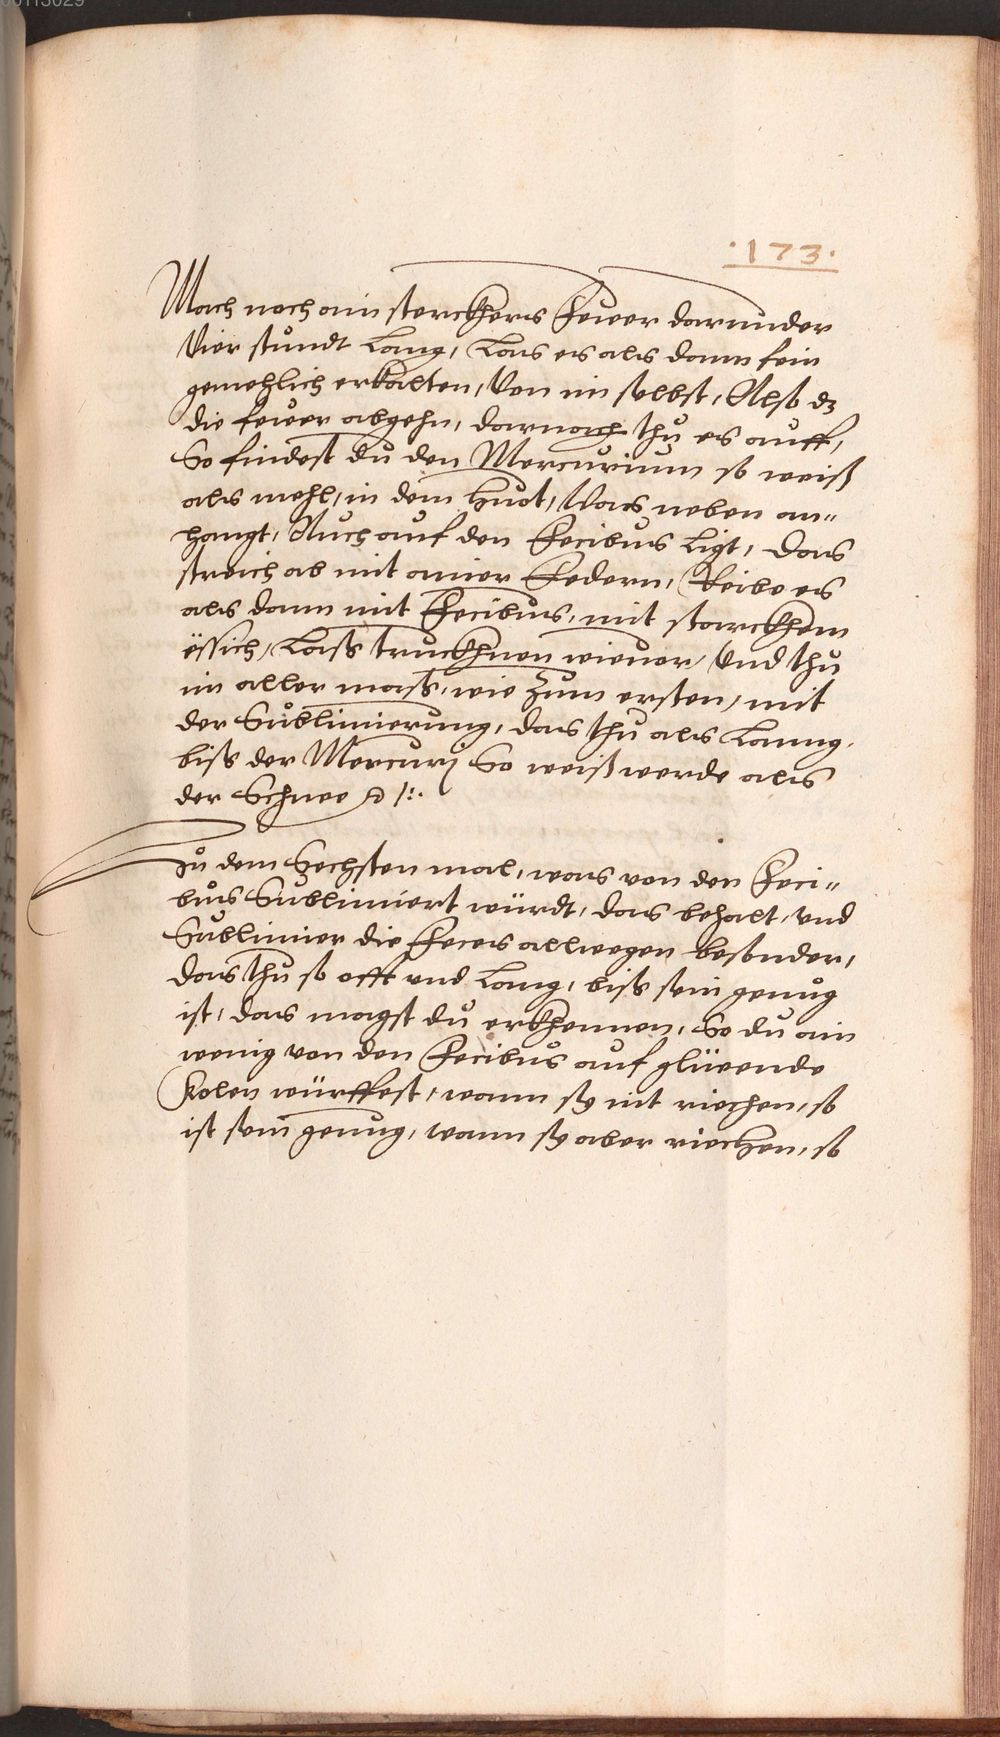 00113029
·173·
Mach noch ain sterckhers Feuer darunder
Vier stundt Lang, Las es als dann fein
gemehlich erkalten, Von im selbst, Also dz
die feuer abgehn, darnach thu es auff,
So findest du den Mercurium so weiß
als mehl, in dem huet, Was neben an-
hangt, Auch auf den Fecibus ligt, das
streich ab mit ainer Federn, Reibe es
als dann mit Fecibus, mit starckhem
essich, Lass truckhnen wieuer, Und thu
im aller mass, wie zum ersten, mit
der Sublimierung, das thu als Lanng,
biss der Mercurj So weiß werde als
der Schnee
Zu dem Sechsten mal, was von den Feci-
bus Sublimiert würdt, das behalt, und
Sublimier die Feces allwegen besonder,
das thu so offt und Lang, biss sein genug
ist, das magst du erkhennen, So du ain
wenig von den Fecibus auf glüeende
Kolen würffest, wann sy nit riechen, so
ist sein genug, wann sy aber riechen, so